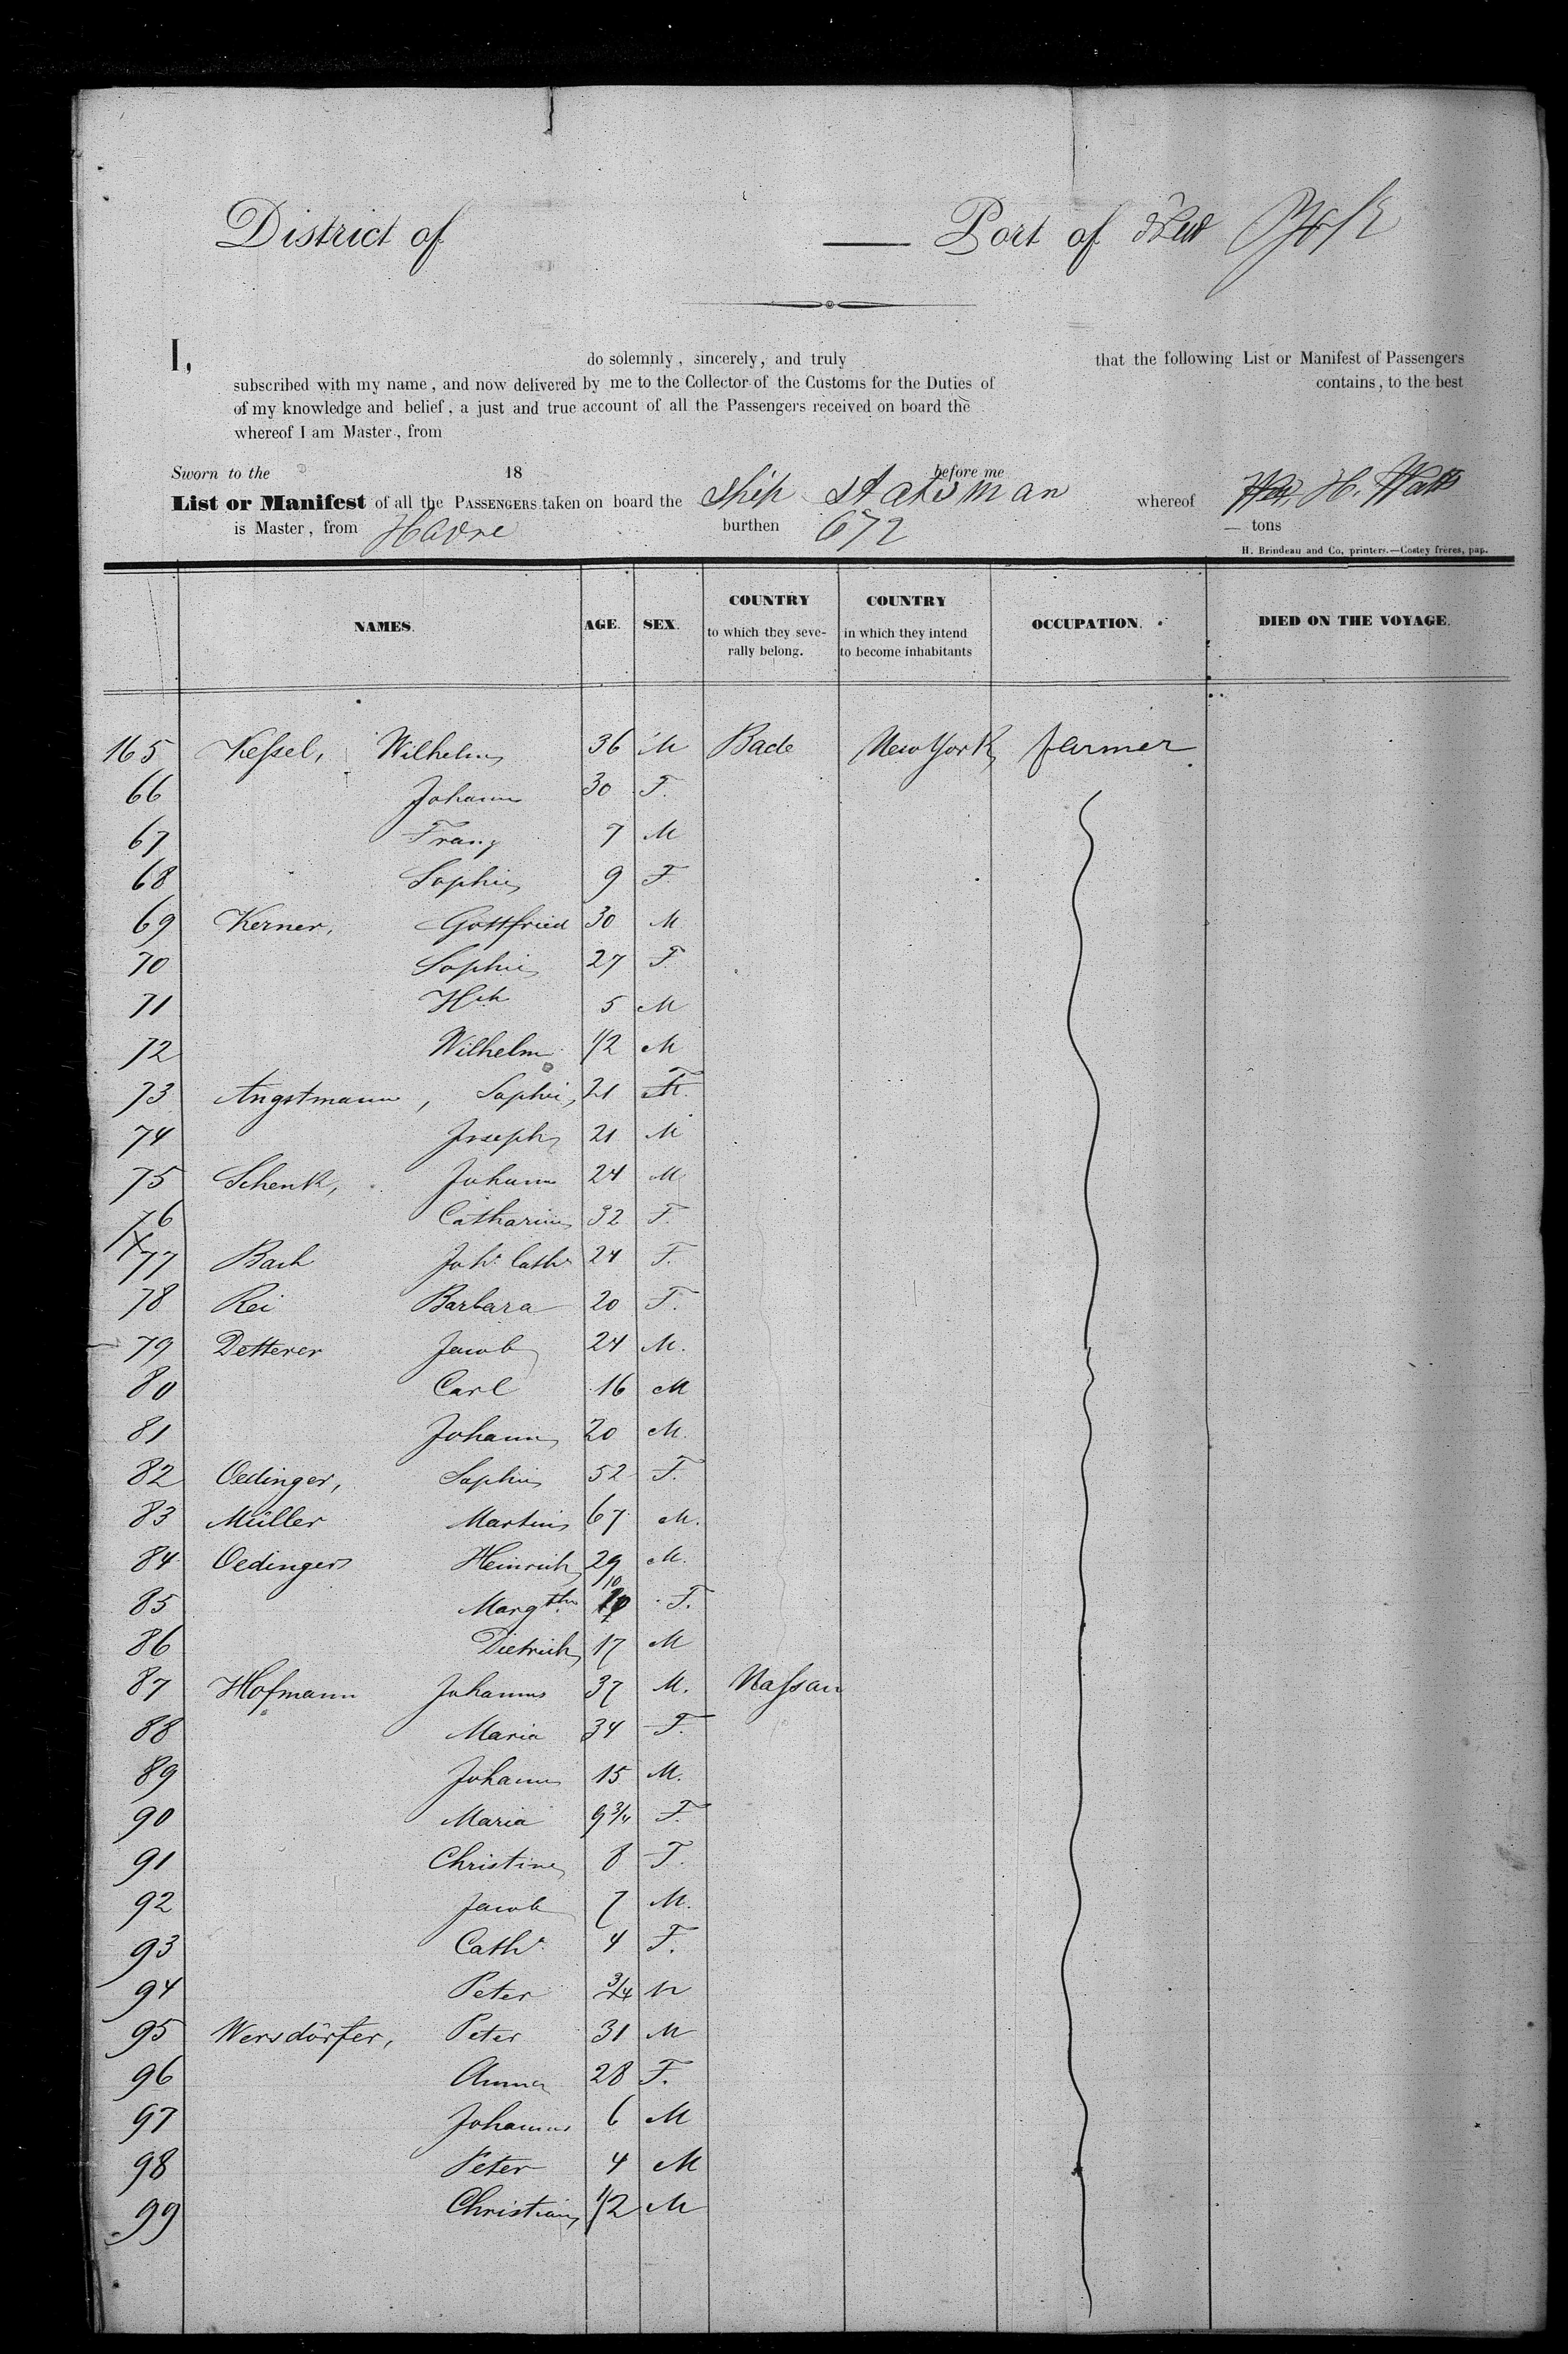 District of — Port of New York
I, do solemnly, sincerely, and truly that the following List or Manifest of Passengers
subscribed with my name, and now delivered by me to the Collector of the Customs for the Duties of contains, to the best
of my knowledge and belief, a just and true account of all the Passengers received on board the
whereof I am Master, from
Sworn to the 18 before me
List or Manifest of all the PASSENGERS taken on board the Ship Statisman whereof H. Watts
is Master, from Havre burthen 672 — tons
H. Brindeau and Co, printers.—Costey frères, pap.
NAMES. AGE. SEX. COUNTRY to which they seve- rally belong. COUNTRY in which they intend to become inhabitants OCCUPATION. DIED ON THE VOYAGE.
165 Keſsel, Wilhelm 36 M Bade New York farmer
66 Johann 30 F.
67 Franz 7 M
68 Sophie 9 F
69 Kerner, Gottfried 30 M
70 Sophie 27 F.
71 Hch 5 M
72 Wilhelm 1/2 M
73 Angstmann, Sophie, 21 F.
74 Joseph 21 M
75 Schenk, Johann 24 M
76 Catharine 32 F.
77 Bach Joh. Cath. 24 F.
78 Rei Barbara 20 F.
79 Detterer Jacob 24 M.
80 Carl 16 M
81 Johann 20 M
82 Oedinger, Sophie 52 F.
83 Müller Martin 67 M.
84 Oedinger Heinrich 29 M.
85 Margth. F.
86 Dietrich 17 M
87 Hofmann Johannes 37 M. Naſsau
88 Maria 34 F.
89 Johann 15 M.
90 Maria 9 3/4 F.
91 Christine 8 F.
92 Jacob 7 M.
93 Cath. 4 F.
94 Peter 3/4 M
95 Wersdörfer, Peter 31 M
96 Anna 28 F.
97 Johannes 6 M
98 Peter 4 M
99 Christian 1/2 M